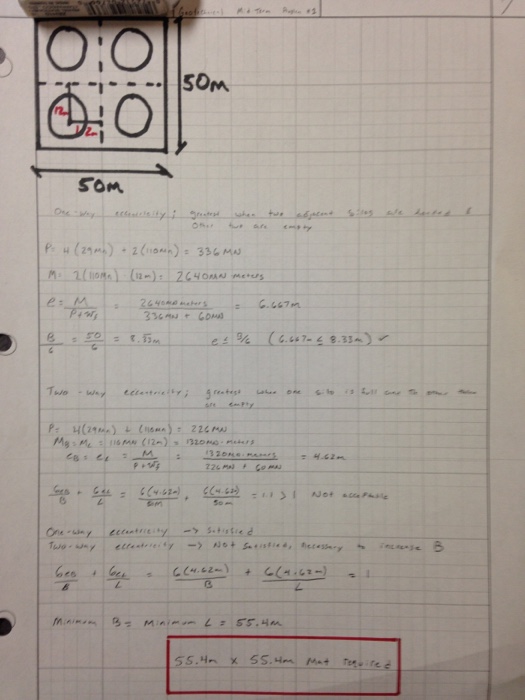 (Geotechnical) Mid Term Problem #1
50m
12m
12m
50m
One-way eccentricity; greatest when two adjacent silos are loaded &
other two are empty
P = 4(29MN) + 2(110MN) = 336 MN
M = 2(110MN)(12m) = 2640MN meters
e = M / P+Wf = 2640MN meters / 336MN + 60MN = 6.667m
B/6 = 50/6 = 8.33m e ≤ B/6 (6.667m ≤ 8.33m) ✓
Two-way eccentricity; greatest when one silo is full and the other
are empty
P = 4(29MN) + (110MN) = 226 MN
MB = ML = 110MN (12m) = 1320MN-meters
eB = eL = M / P+Wf = 1320MN-meters / 226MN + 60MN = 4.62m
6eB/B + 6eL/L = 6(4.62m)/50m + 6(4.62)/50m = 1.1 > 1 Not acceptable
One-way eccentricity → Satisfied
Two-way eccentricity → Not Satisfied, necessary to increase B
6eB/B + 6eL/L = 6(4.62m)/B + 6(4.62m)/L = 1
Minimum B = Minimum L = 55.4m
55.4m x 55.4m Mat required